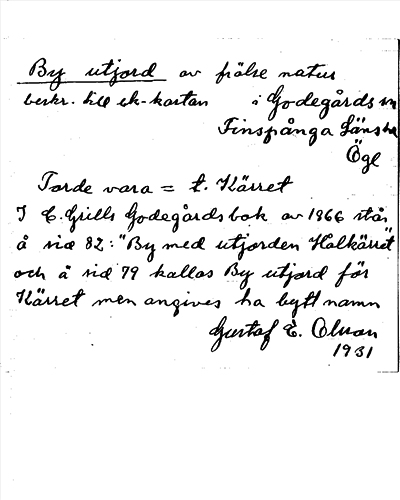 By utjord av frälse natur
beskr. till ek-kartan i Godegårds sn
Finspånga läns hd
Ögl
Torde vara = t. Kärret
I C. Grills Godegårdsbok av 1866 står
å sid 82: "By med utjorden Halkärret"
och å sid 79 kallas By utjord för
Kärret men angives ha bytt namn
Gustaf E. Olsson
1931